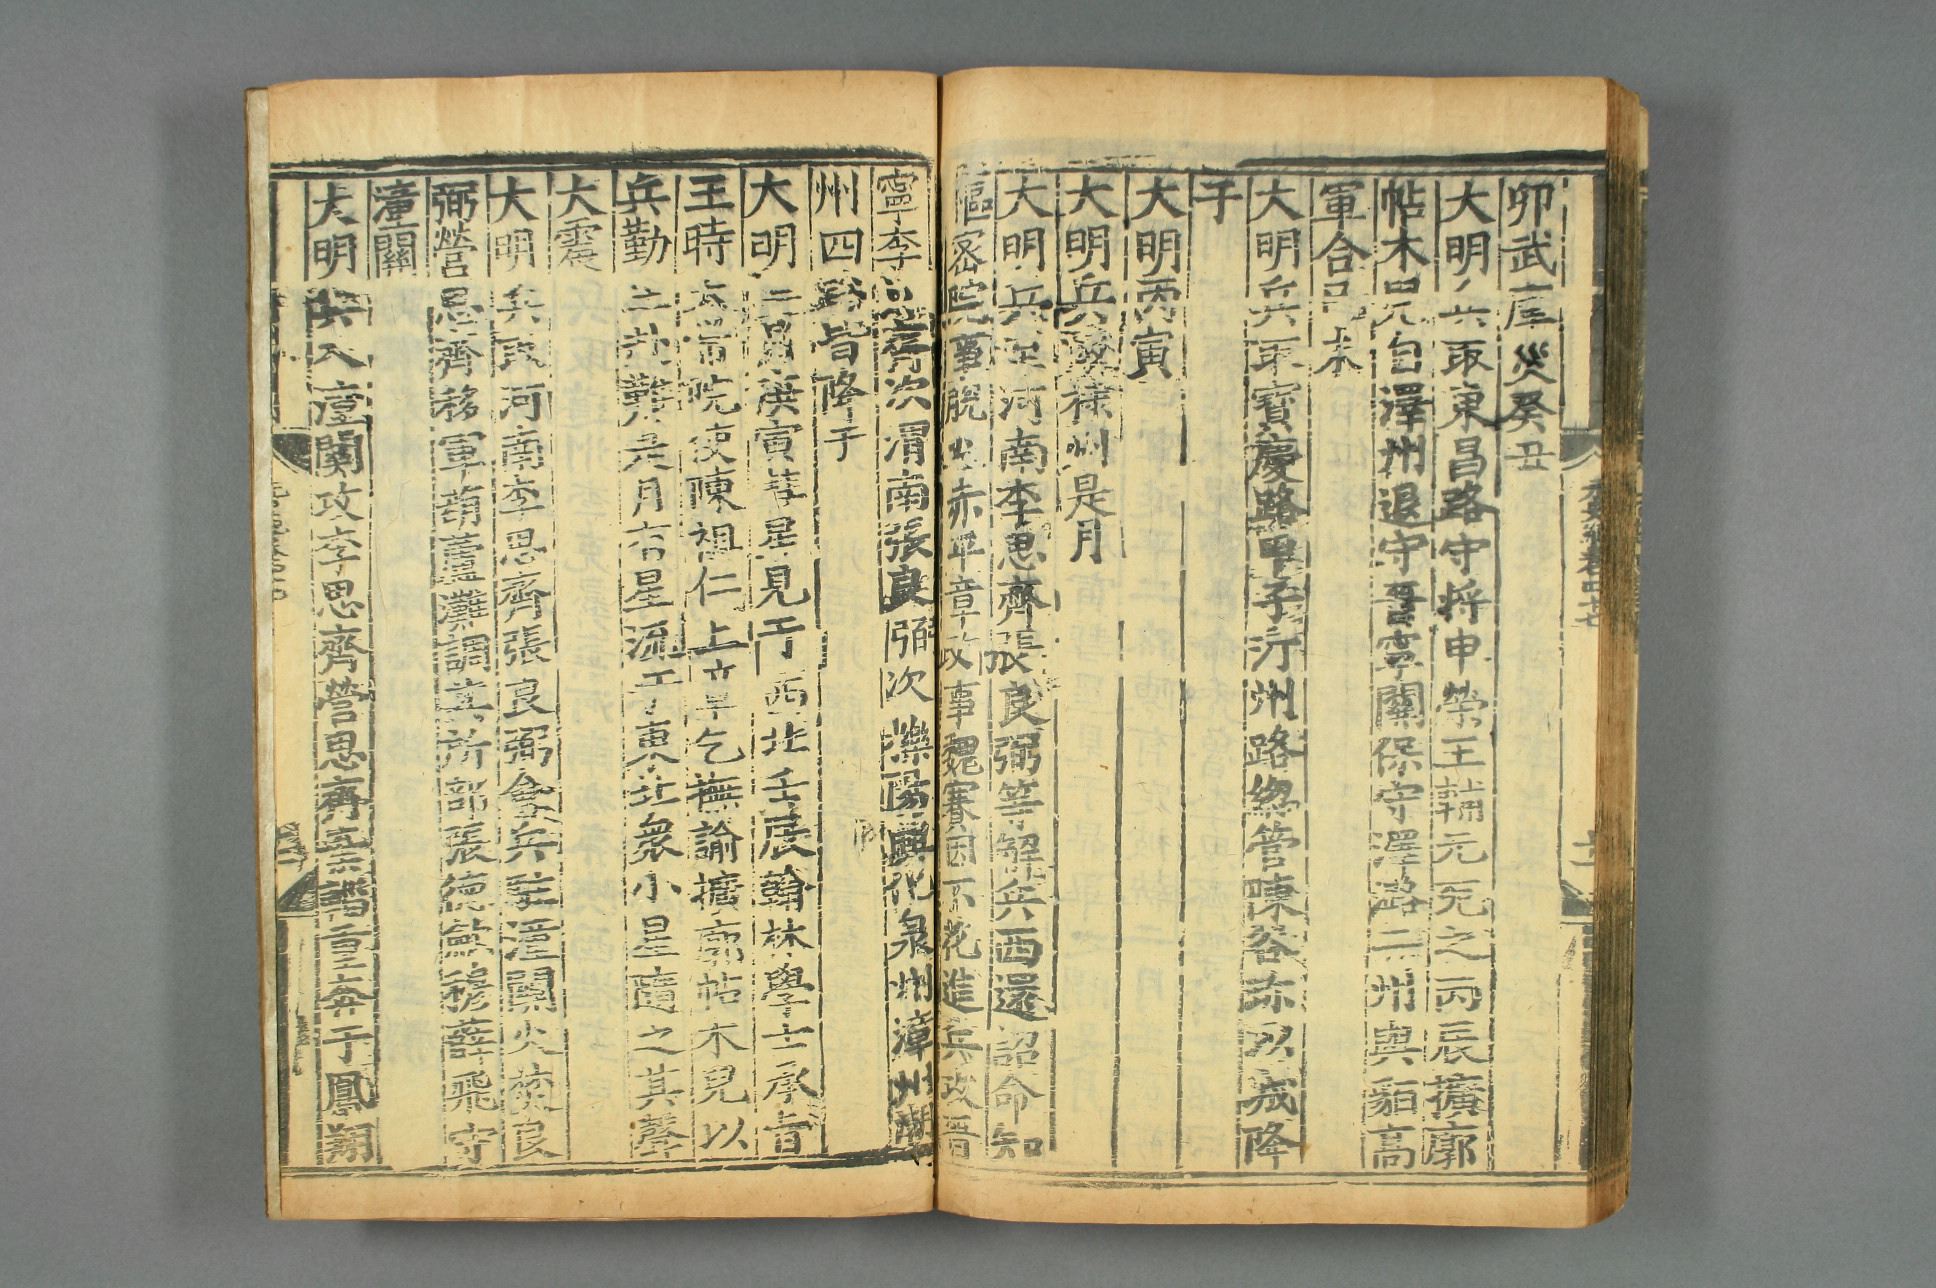 卯武庫災癸丑
大明兵取東昌路守將申榮王輔元死之丙辰擴廓
帖木兒自澤州退守晉寧關保守澤潞二州與貊高
軍合己未
大明兵取寶慶路甲子沂州路緫管陳谷赤以城降
子
大明丙寅
大明兵襲棣州是月
大明兵至河南李思齊張良弼等解兵西還詔命知
樞密院事脫火赤平章政事魏賽因不花進兵攻晉
寧李思齊次渭南張良弼次櫟陽興化泉州漳州潮
州四路皆降
大明二月庚寅彗星見于西北壬辰翰林學士承旨
王時太常院使陳祖仁上章乞撫諭擴廓帖木兒以
兵勤王赴難是月有星流于東北衆小星隨之其聲
大震
大明兵取河南李思齊張良弼會兵駐潼關火焚良
弼營思齊移軍葫蘆灘調其所部張德欽穆薛飛守
潼關
大明兵入潼關攻李思齊營思齊棄輜重奔于鳳翔